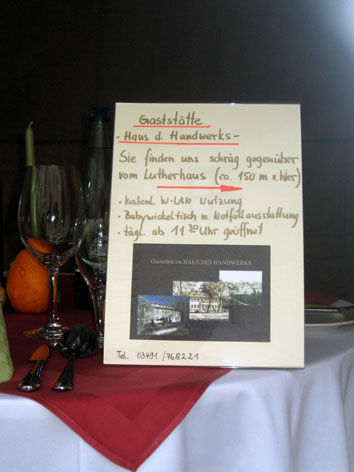 Gaststätte
- Haus d. Handwerks -
Sie finden uns schräg gegenüber
vom Lutherhaus (ca. 150 m v. hier)
- kostenl. W-LAN Nutzung
- Babywickeltisch m. Notfallausstattung
- tägl. ab 11 30 Uhr geöffnet
Gaststätte im HAUS DES HANDWERKS
Tel. 03491 / 768221